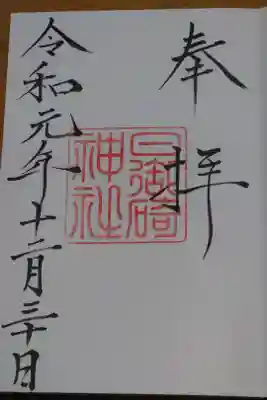 奉拝
日御碕神社
令和元年十二月三十日